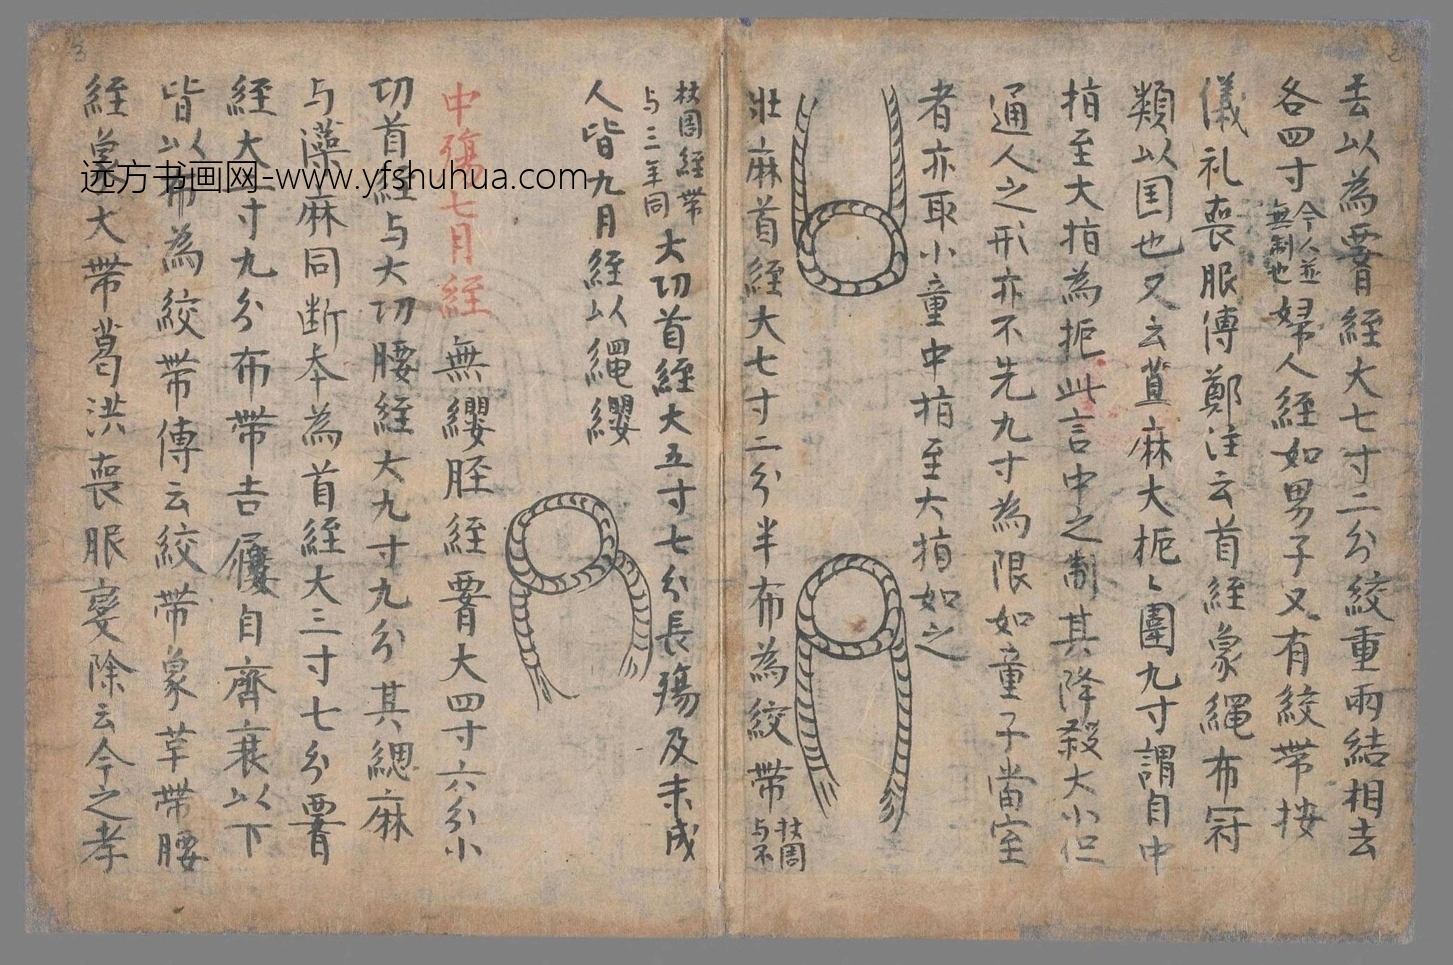 去以為䒶絰大七寸二分絞重兩結相去
各四寸今人並無制也婦人絰如男子又有絞帶按
儀礼喪服傳鄭注云首絰象䋲布冠
類以囯也又云苴麻大扼〻圍九寸謂自中
指至大指為扼此言中之制其降殺大小但
通人之形亦不先九寸為限如童子當室
者亦取小童中指至大指如之
壯麻首絰大七寸二分半布為絞帶杖周与不
杖周絰帶与三年同大功首絰大五寸七分長殤及未成
人皆九月絰以繩纓
中殤七月絰無纓胵絰大四寸六分小
切首絰与大功腰絰大九寸九分其緦麻
与藻麻同断本為首絰大三寸七分
絰大二寸九分布帶吉屨自齊衰以下
皆以布為絞帶傳云絞帶象革帶腰
絰象大帶葛洪喪服變除云今之孝
3
2
远方书画网-www.yfshuhua.com